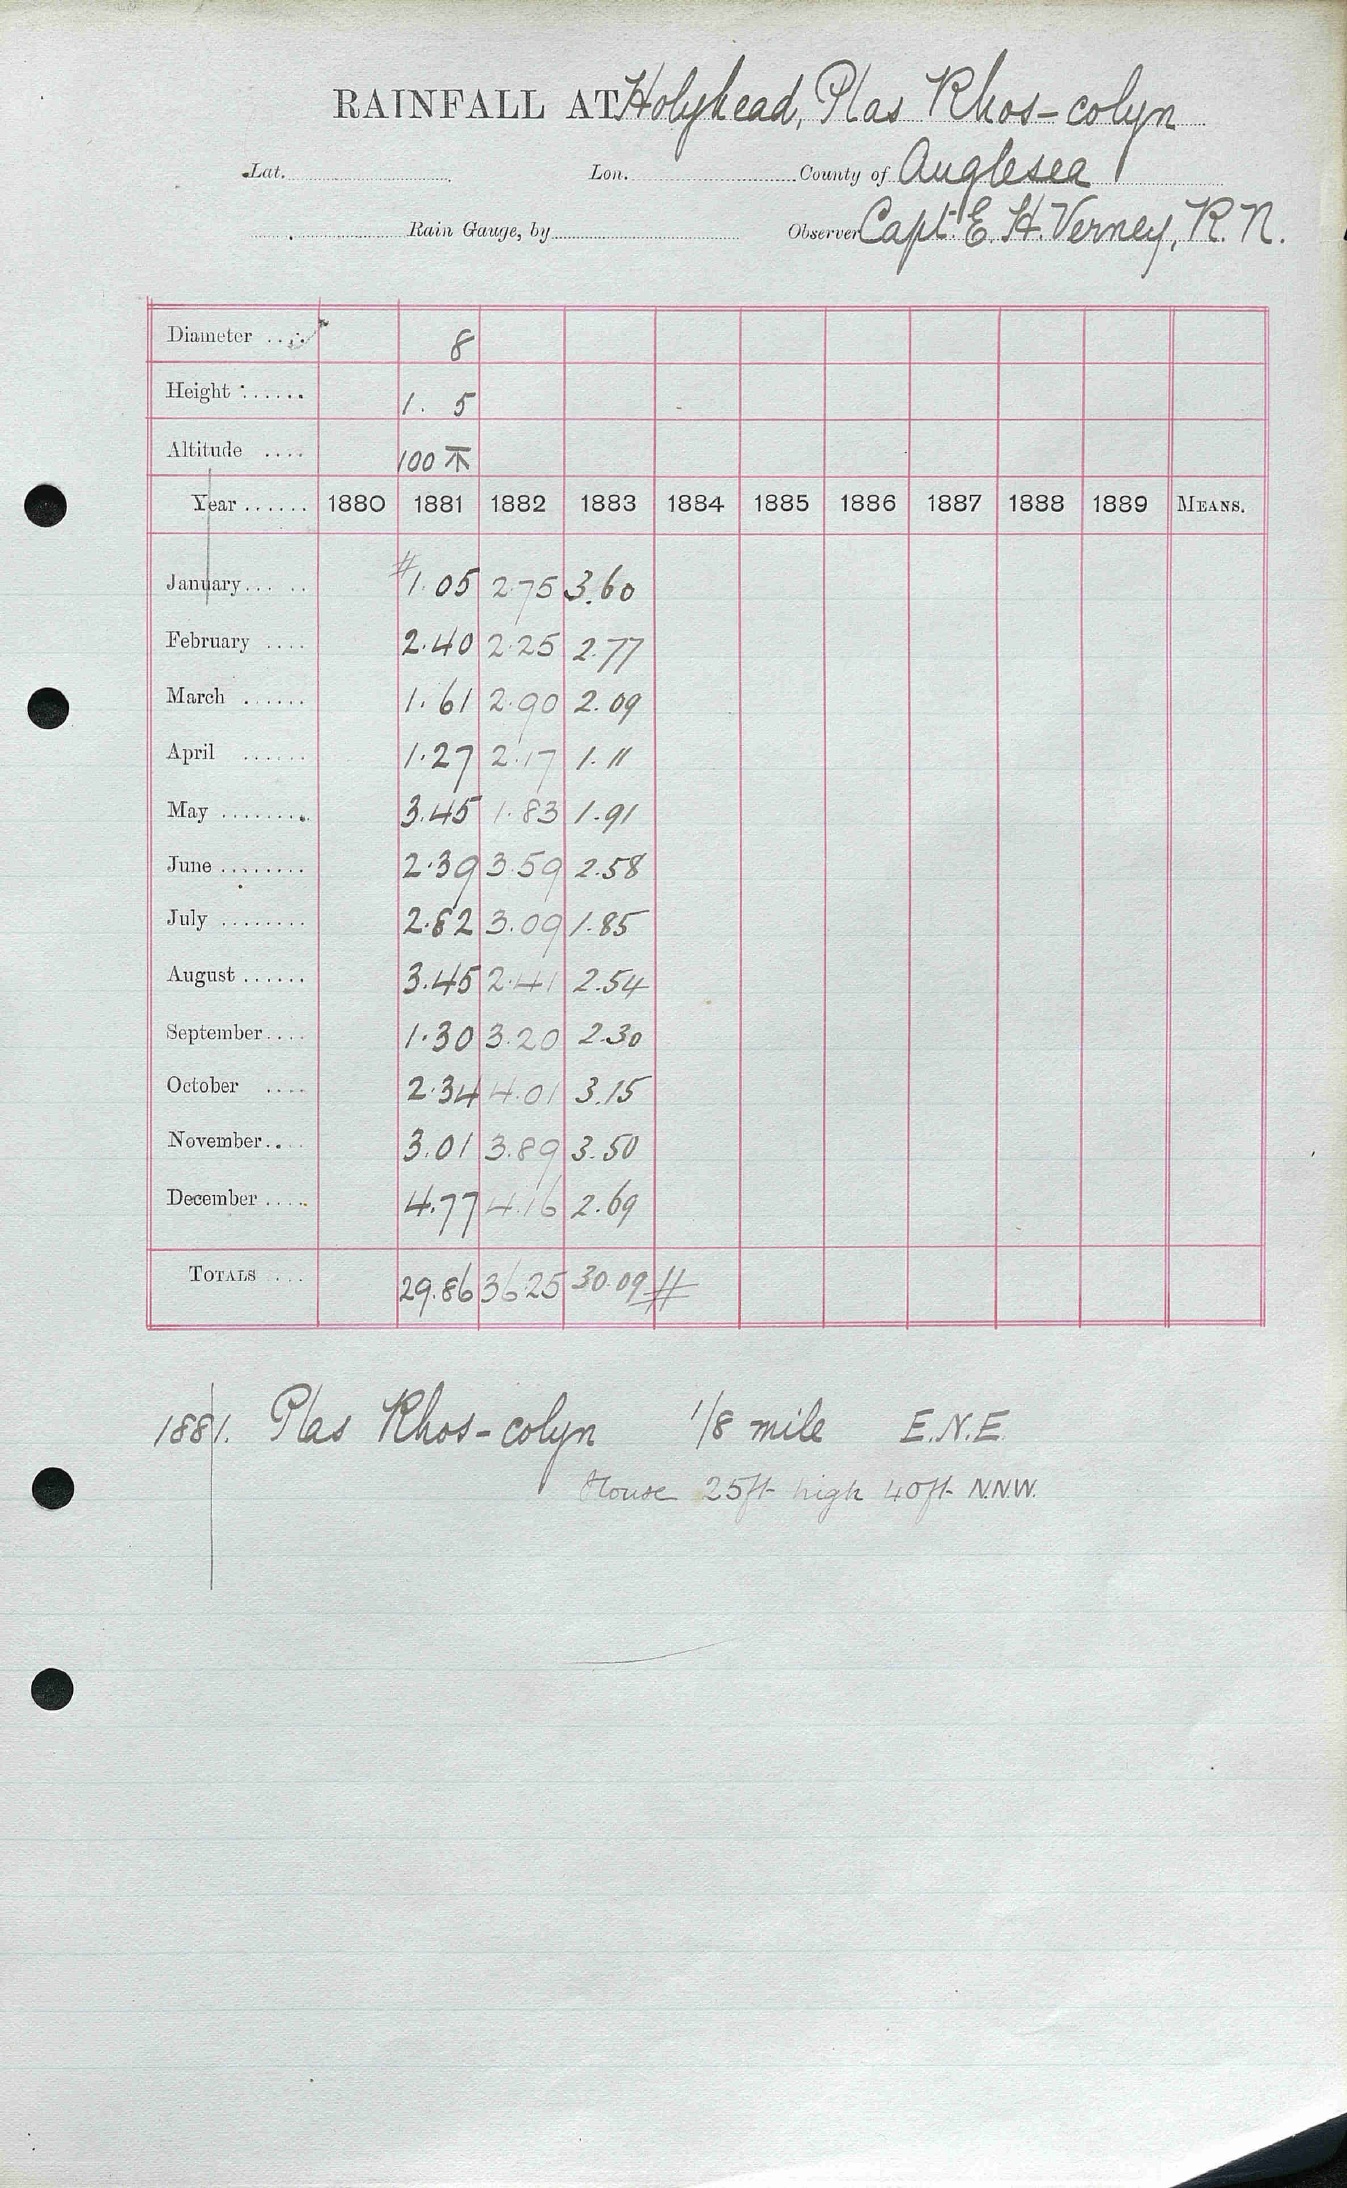 RAINFALL AT Holyhead, Plas Rhos-colyn
Lat. Lon. County of Anglesea
Rain Gauge, by Observer Capt. E. H. Verney, R. N.
Diameter .... 8
Height ...... 1. 5
Altitude .... 100
Year ...... 1880 1881 1882 1883 1884 1885 1886 1887 1888 1889 MEANS.
January ..... # 1.05 2.75 3.60
February .... 2.40 2.25 2.77
March ...... 1.61 2.90 2.09
April ...... 1.27 2.17 1.11
May ........ 3.45 1.83 1.91
June ........ 2.39 3.59 2.58
July ........ 2.82 3.09 1.85
August ...... 3.45 2.41 2.54
September .... 1.30 3.20 2.30
October .... 2.34 4.01 3.15
November .... 3.01 3.89 3.50
December .... 4.77 4.16 2.69
TOTALS .... 29.86 36.25 30.09 #
1881. Plas Rhos-colyn 1/8 mile E.N.E.
House 25ft high 40ft N.N.W.